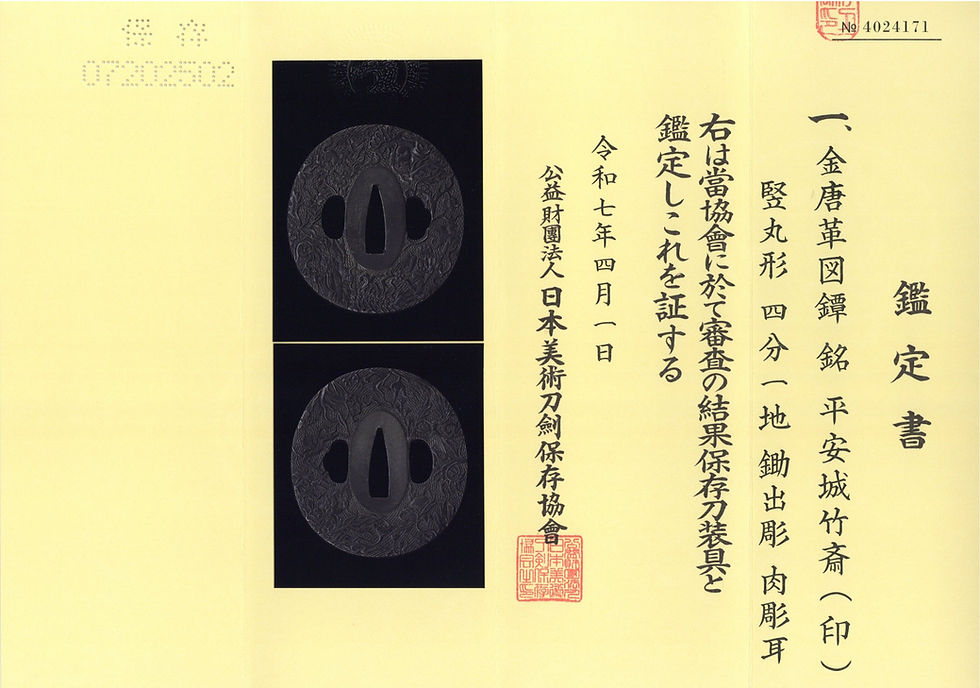 № 4024171
鑑定書
一、金唐革図鐔 銘 平安城竹斎(印)
竪丸形 四分一地 鋤出彫 肉彫耳
右は當協會に於て審査の結果保存刀装具と
鑑定しこれを証する
令和七年四月一日
公益財團法人 日本美術刀劍保存協會
保存
07202502